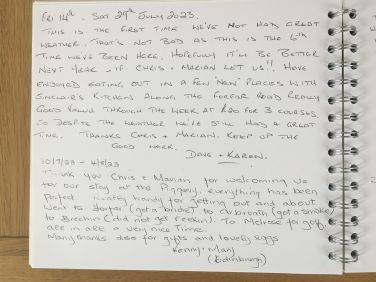 FRI 14th - SAT 29th JULY 2023.
THIS IS THE FIRST TIME WE'VE NOT HAD GREAT
WEATHER. THAT'S NOT BAD AS THIS IS THE 6th
TIME WE'VE BEEN HERE. HOPEFULLY IT'LL BE BETTER
NEXT YEAR - IF CHRIS + MARIAN LET US!! HAVE
ENJOYED EATING OUT IN A FEW 'NEW' PLACES WITH
SINCLAIR'S KITCHEN ALONG THE FORFAR ROAD REALLY
GOOD VALUE THROUGH THE WEEK AT £20 FOR 3 COURSES.
SO DESPITE THE WEATHER WE'VE STILL HAD A GREAT
TIME. THANKS CHRIS + MARIAN. KEEP UP THE
GOOD WORK.
DAVE + KAREN.
30/7/23 - 4/8/23
Thank you Chris & Marian for welcoming us
for our stay at the Piggery, everything has been
perfect. Really handy for getting out and about
went to Forfar (got a bridie) to Arbroath (got a smokie)
to Brechin (did not get reekin). To Melrose for golf,
all in all a very nice time.
Many thanks also for gifts and lovely eggs
Kenny + Mary
(Edinburgh)